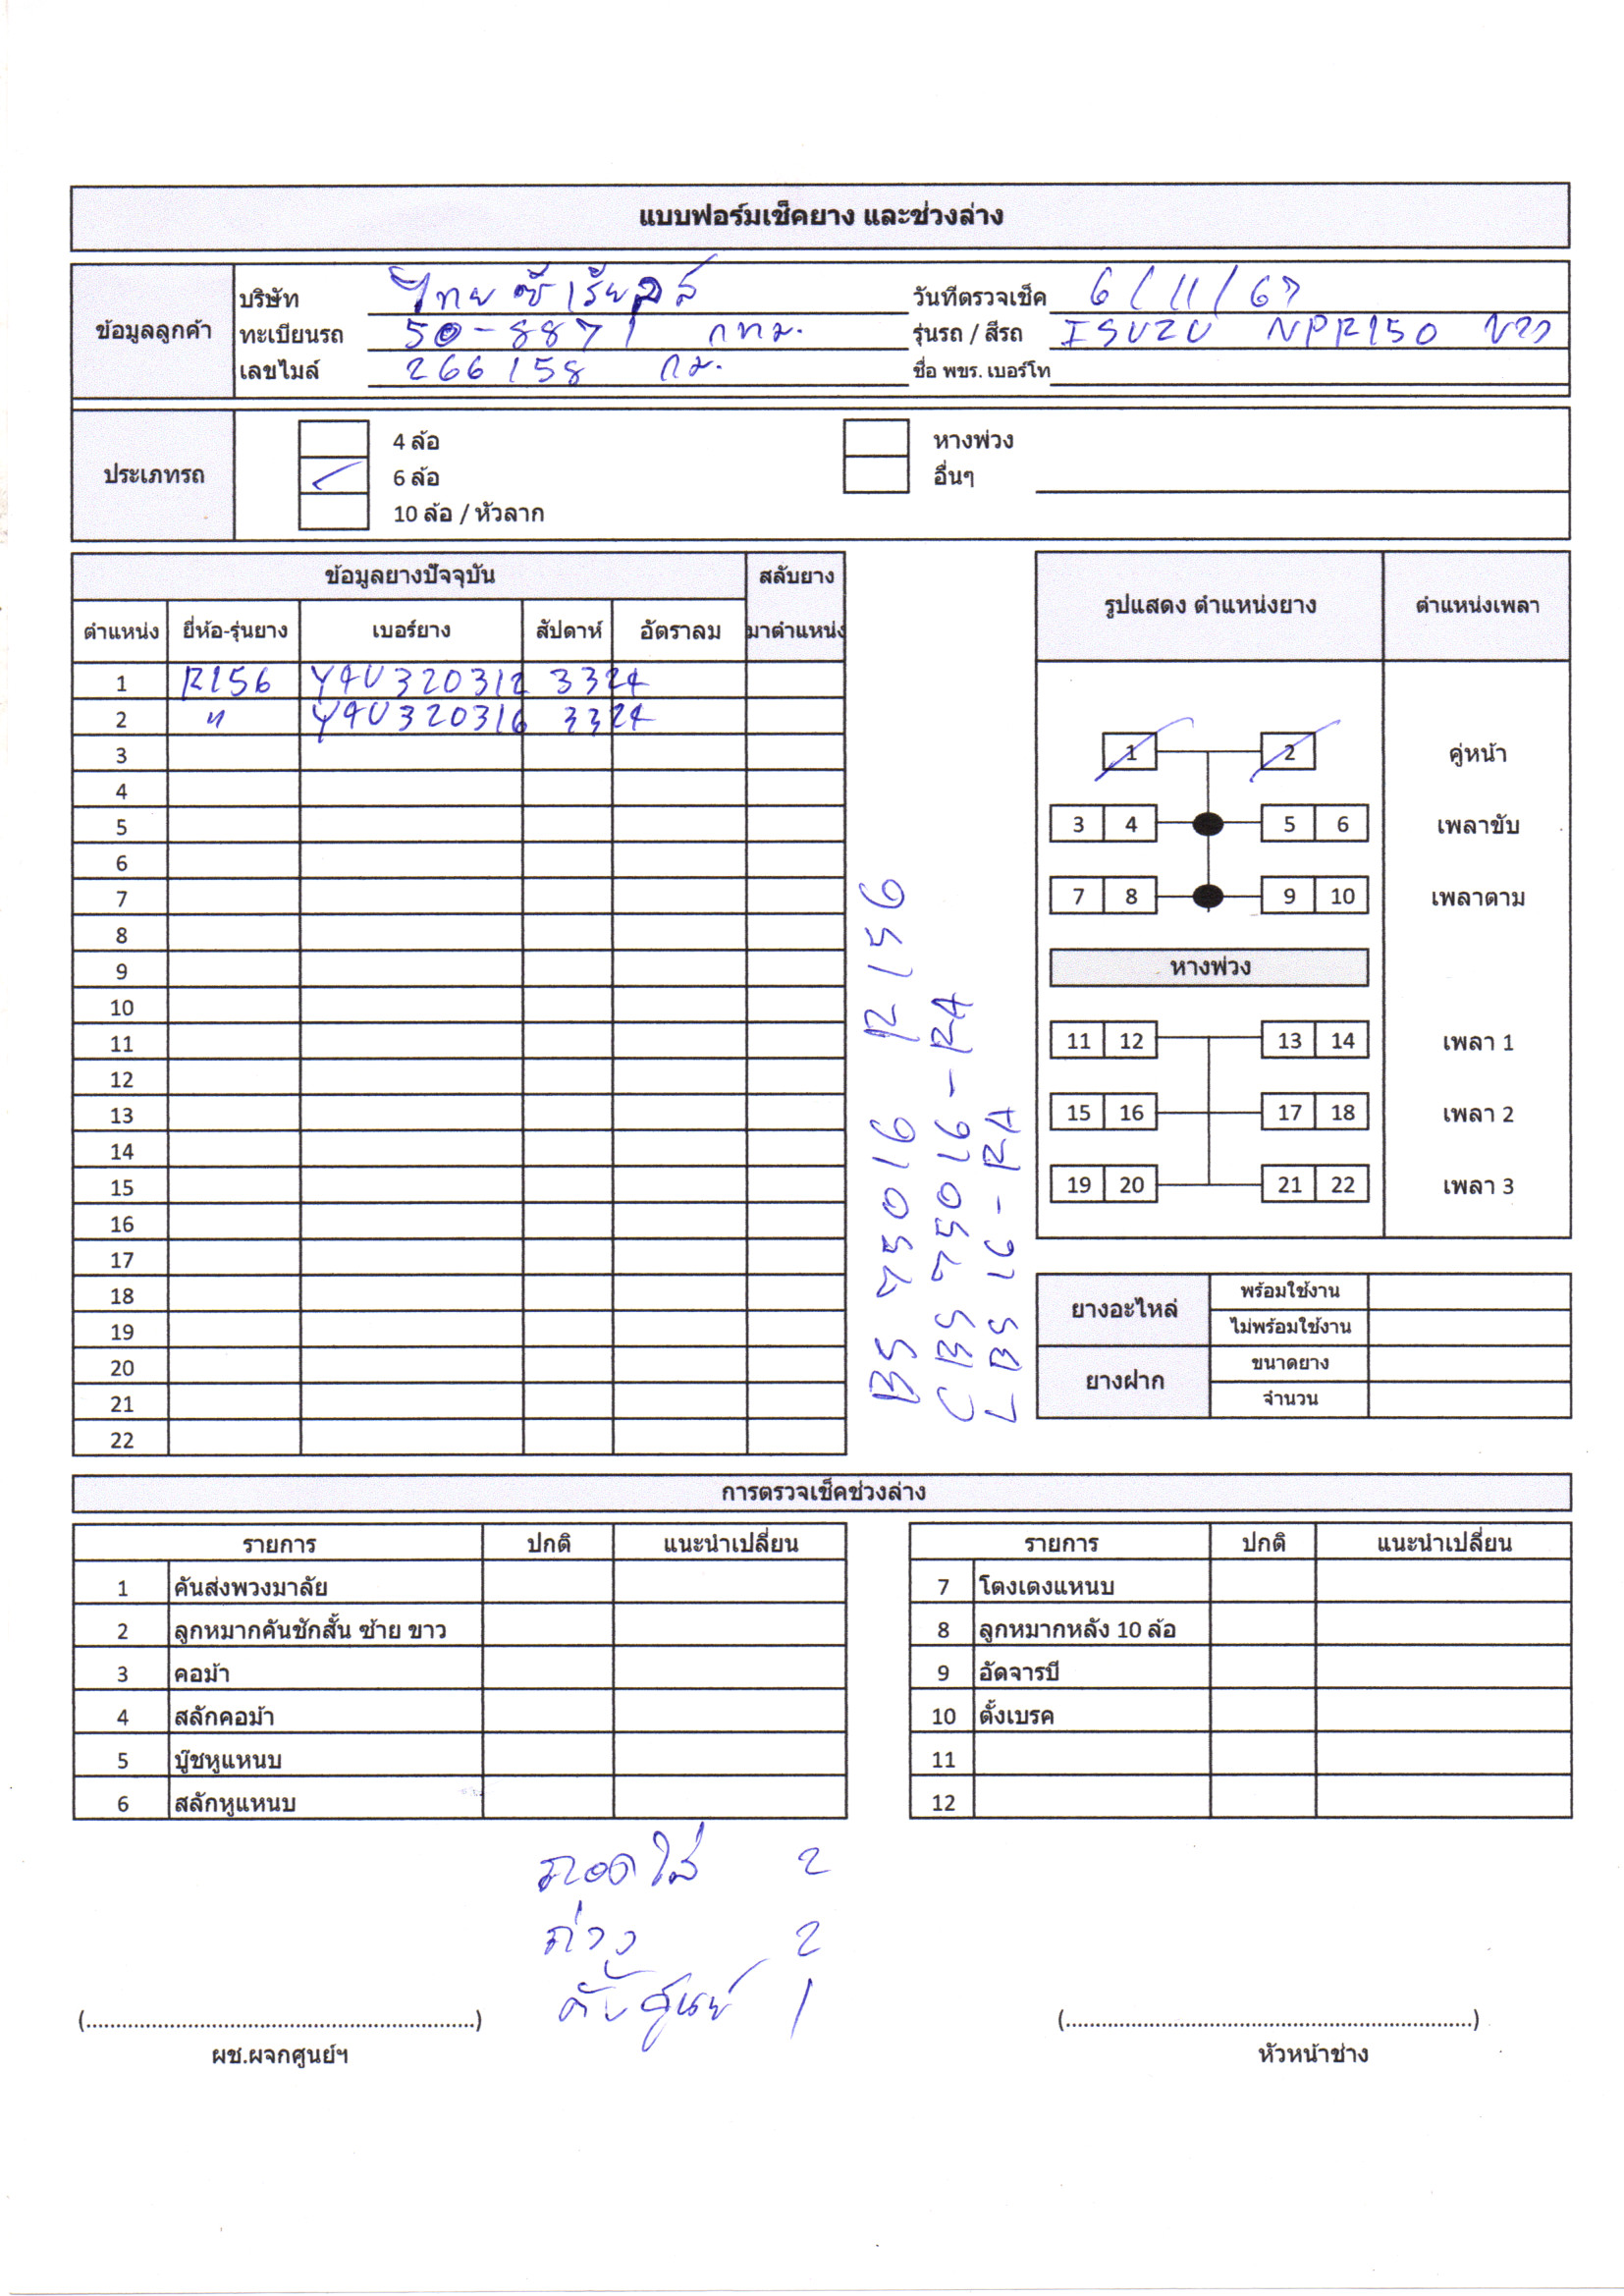 แบบฟอร์มเช็คยาง และช่วงล่าง
ข้อมูลลูกค้า
บริษัท ไทยซีเรียลส์
วันที่ตรวจเช็ค 6/11/67
ทะเบียนรถ 50-8871 กทม.
รุ่นรถ / สีรถ ISUZU NPR150 ขาว
เลขไมล์ 266158 กม.
ชื่อ พขร. เบอร์โท
ประเภทรถ
4 ล้อ
หางพ่วง
6 ล้อ
อื่นๆ
10 ล้อ / หัวลาก
ข้อมูลยางปัจจุบัน สลับยาง
ตำแหน่ง ยี่ห้อ-รุ่นยาง เบอร์ยาง สัปดาห์ อัตราลม มาตำแหน่ง
1 R156 Y4U320312 3324
2 " Y4U320316 3324
3
4
5
6
7
8
9
10
11
12
13
14
15
16
17
18
19
20
21
22
BS 75016 R156
CBS 75016-RA
LBS 16-RA
รูปแสดง ตำแหน่งยาง ตำแหน่งเพลา
1 2 คู่หน้า
3 4 5 6 เพลาขับ
7 8 9 10 เพลาตาม
หางพ่วง
11 12 13 14 เพลา 1
15 16 17 18 เพลา 2
19 20 21 22 เพลา 3
ยางอะไหล่ พร้อมใช้งาน
ไม่พร้อมใช้งาน
ยางฝาก ขนาดยาง
จำนวน
การตรวจเช็คช่วงล่าง
รายการ ปกติ แนะนำเปลี่ยน
1 คันส่งพวงมาลัย
2 ลูกหมากคันชักสั้น ซ้าย ขาว
3 คอม้า
4 สลักคอม้า
5 บู๊ชหูแหนบ
6 สลักหูแหนบ
รายการ ปกติ แนะนำเปลี่ยน
7 โตงเตงแหนบ
8 ลูกหมากหลัง 10 ล้อ
9 อัดจารบี
10 ตั้งเบรค
11
12
ถอดใส่ 2
ถ่วง 2
ตั้งศูนย์ 1
(................................................................)
ผช.ผจกศูนย์ฯ
(................................................................)
หัวหน้าช่าง